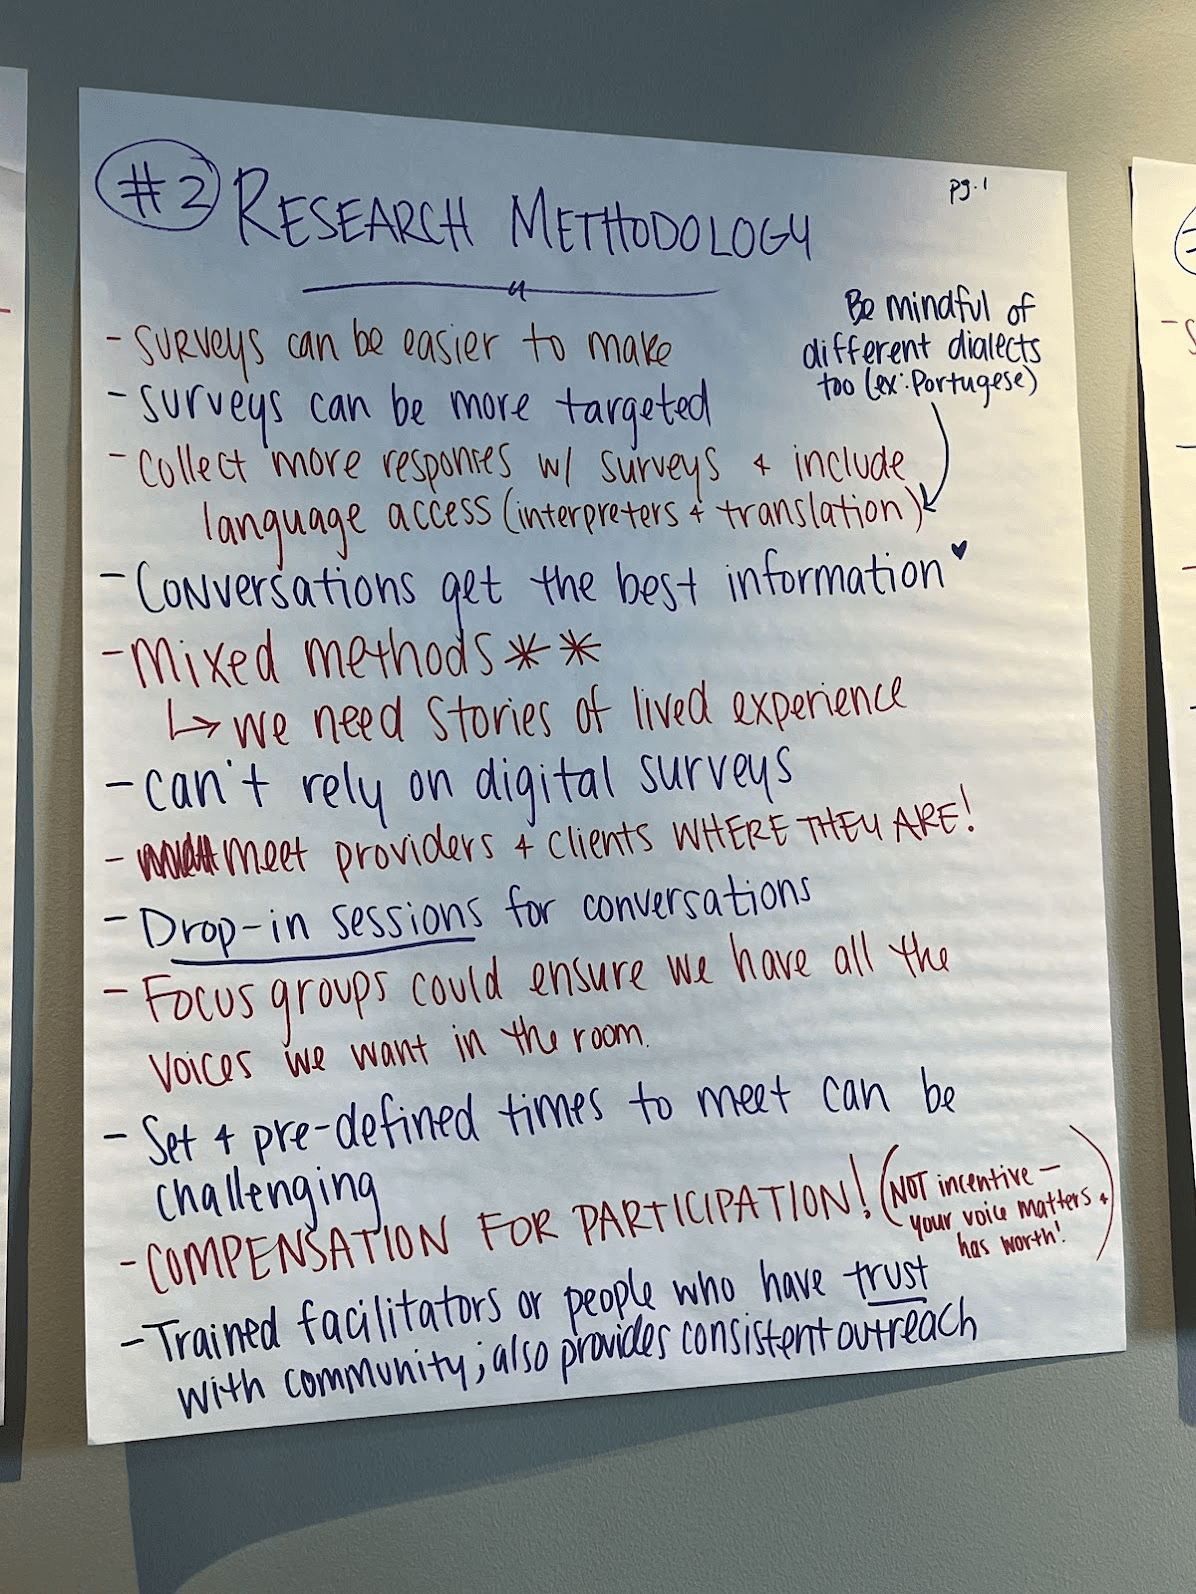 #2 RESEARCH METHODOLOGY
pg. 1
Be mindful of
different dialects
too (ex: Portugese)
- Surveys can be easier to make
- Surveys can be more targeted
- Collect more responses w/ surveys + include
language access (interpreters + translation)
- Conversations get the best information ♥
- Mixed methods **
↳ we need stories of lived experience
- can't rely on digital surveys
- meet providers + clients WHERE THEY ARE!
- Drop-in sessions for conversations
- Focus groups could ensure we have all the
voices we want in the room.
- Set + pre-defined times to meet can be
challenging
- COMPENSATION FOR PARTICIPATION! (NOT incentive —
your voice matters +
has worth!)
- Trained facilitators or people who have trust
with community; also provides consistent outreach